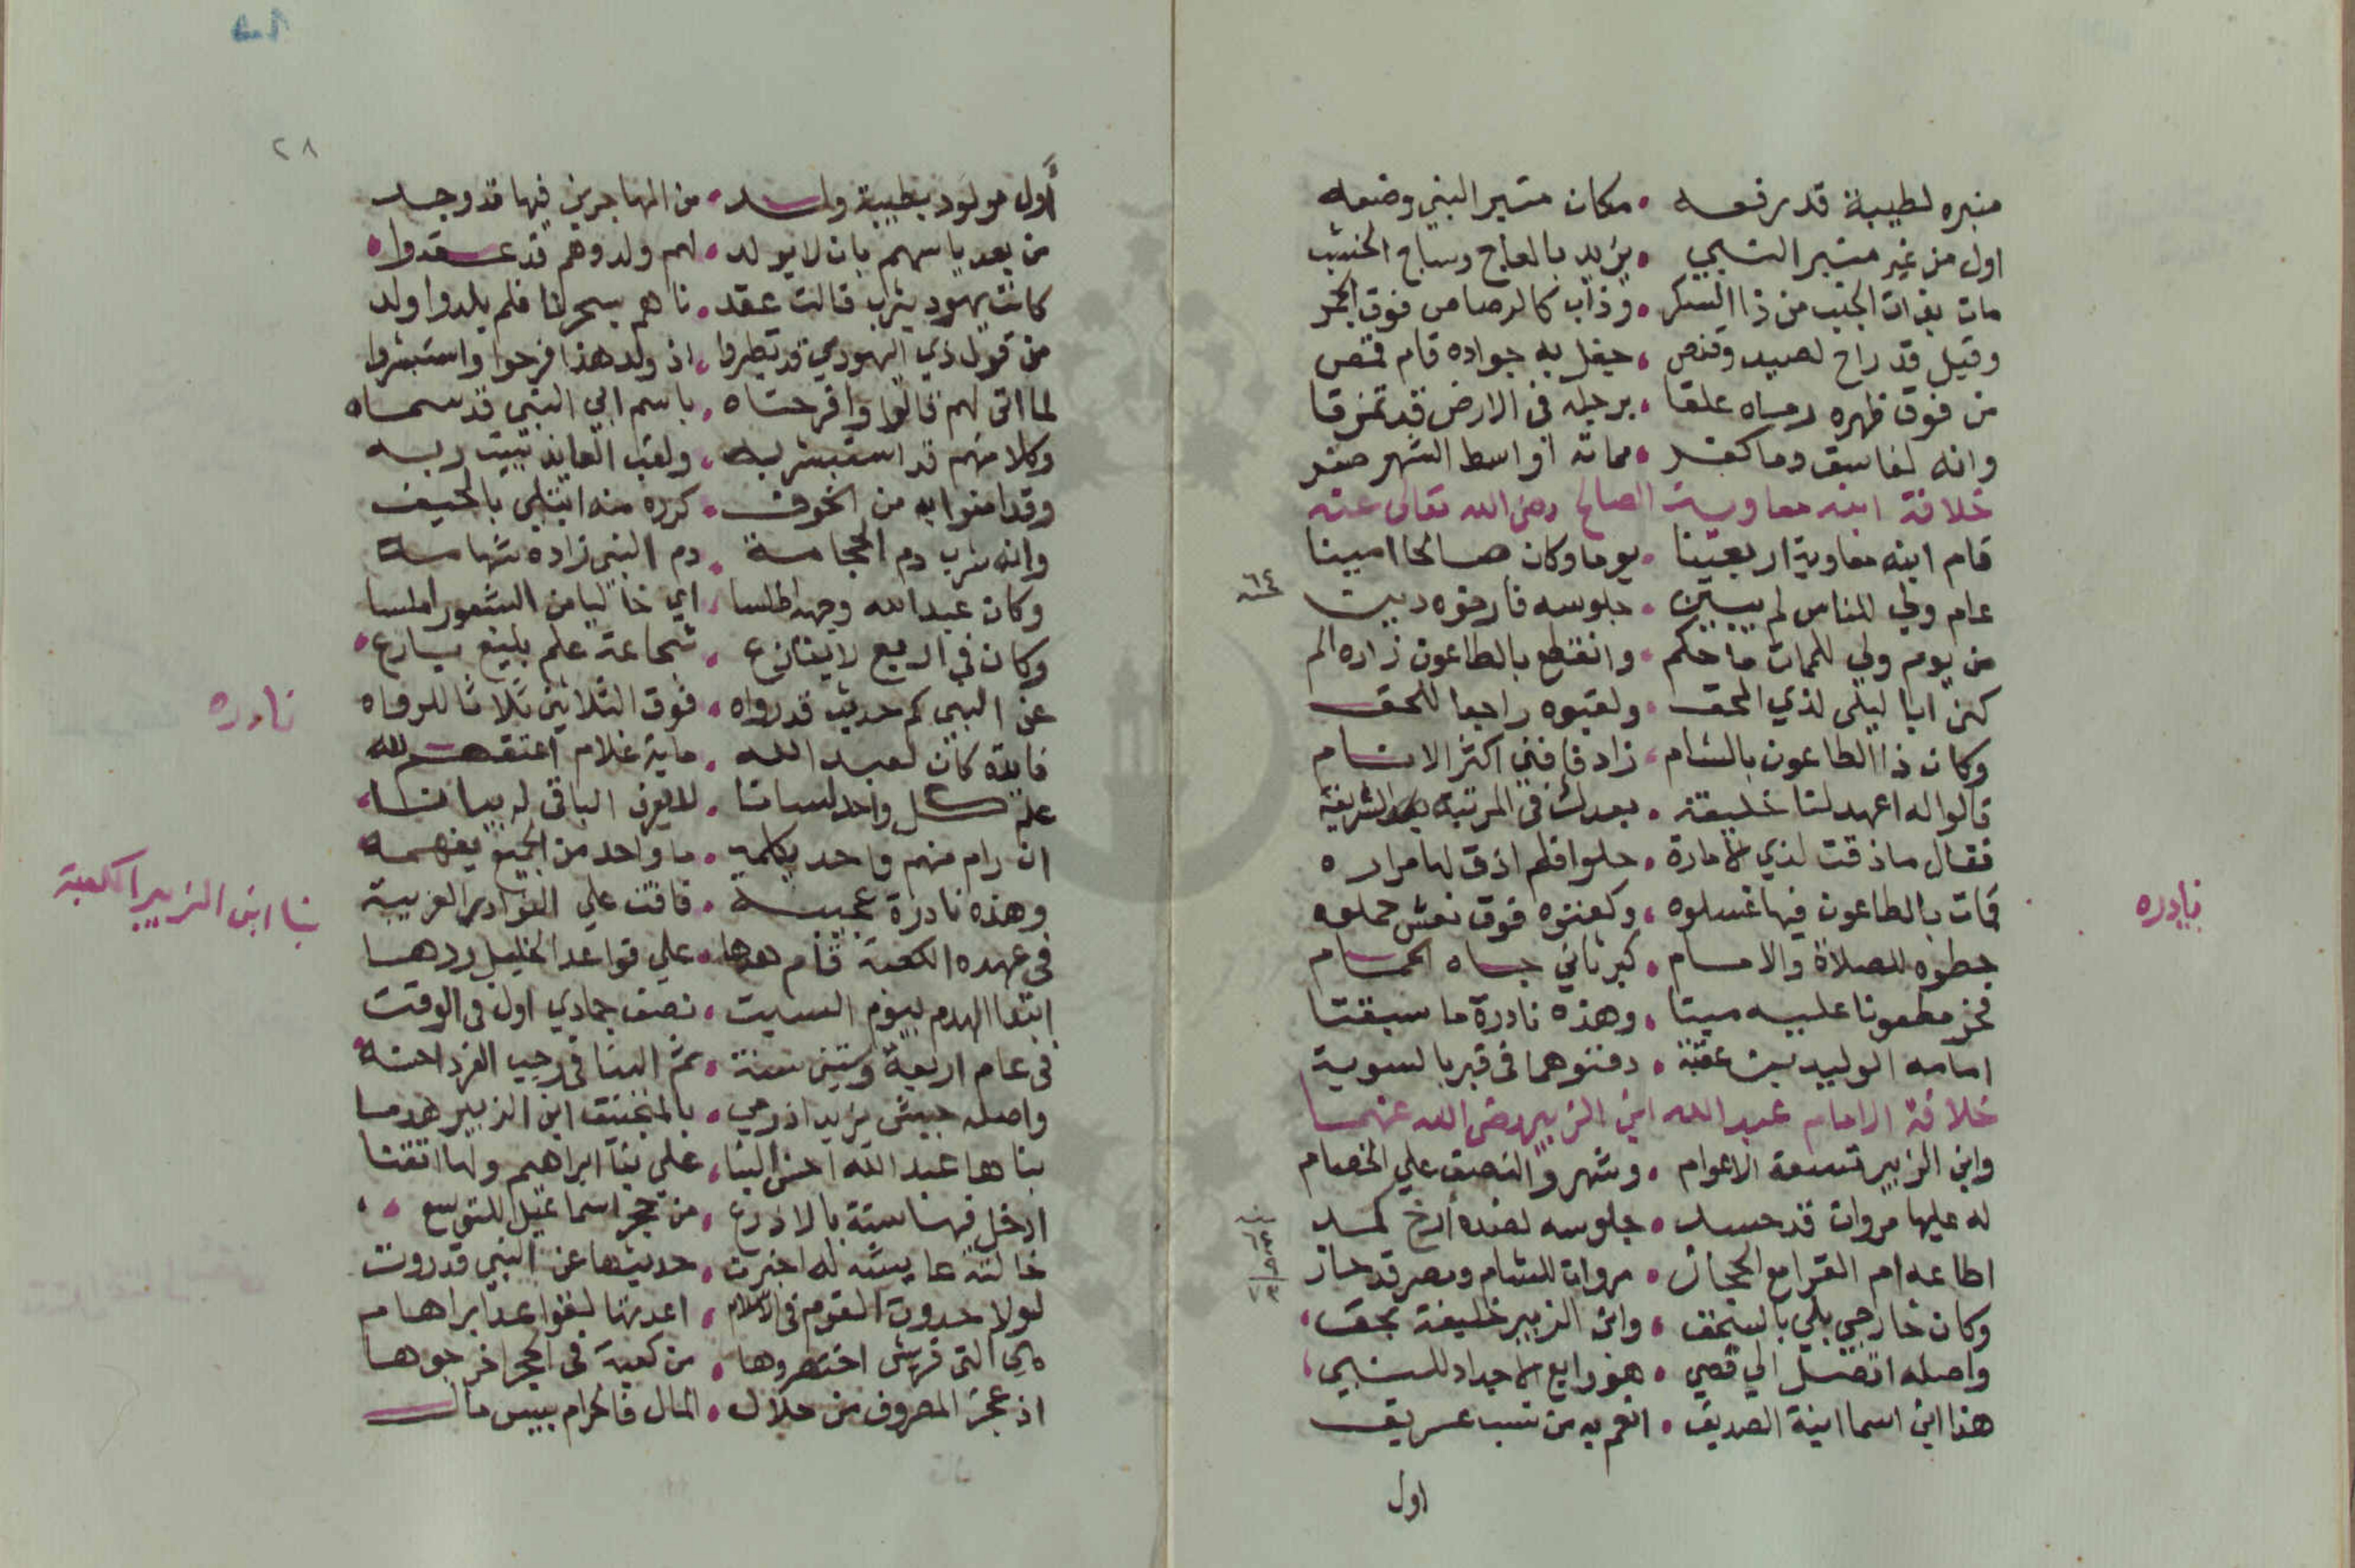 منبره لطيبة قد رفعه • مكان منبر النبي وضعه
اول من غير منبر النبي • يزيد بالعاج وساج الخشب
مات بذات الجنب من ذا السكر • وذاب كالرصاص فوق الجمر
وقيل قد راح لصيد وقنص • جفل به جواده قام قمص
من فوق ظهره رماه علقا • برجله في الارض قد تمزقا
وانه لفاسق وما كفر • مماته اواسط الشهر صفر
خلافة ابنه معاوية الصالح رضي الله تعالى عنه
قام ابنه معاوية اربعينا • يوما وكان صالحا امينا
عام ولي للناس لم يبين • جلوسه فارخوه دبيت
٦٤ سنه
من يوم ولي للممات ما حكم • وانقطع بالطاعون زاره الم
كني ابا ليلى لذي المحق • ولقبوه راجعا للحق
وكان ذا الطاعون بالشام • زاد فافني اكثر الانام
قالوا له اعهد لنا خليفة • بعدك في المرتبة الشريفة
فقال ما ذقت لذي الامارة • حلوا فلم اذق لها مراره
نادره
فات بالطاعون فيها غسلوه • وكفنوه فوق نعش حملوه
حطوه للصلاة والامام • كبر ثاني جاه الحمام
فخر مطعونا عليه ميتا • وهذه نادرة ما سبقتا
امامه الوليد بن عقبة • دفنوهما في قبر بالسوية
خلافة الامام عبد الله ابن الزبير رضي الله عنهما
وابن الزبير تسعة الاعوام • وشهر والنصف علي الخصام
له عليها مروان قد حسد • جلوسه لضده أرخ كمد
اطاعه ام القرا مع الحجاز • مروان للشام ومصر قد حاز
وكان خارجي بلي بالسحق • وابن الزبير خليفة بحق
واصله اتصل الي قصي • هو رابع الاجداد للنبي
هذا ابن اسما ابنة الصديق • انعم به من نسب عريق
اول
٢٨
أول مولود بطيبة ولد • من المهاجرين فيها قد وجد
من بعد ياسهم بان لا يولد • لهم ولد وهم قد عقدوا
كانت يهود يثرب قالت عقد • ناهم بسحرنا فلم يلدوا ولد
من قول ذي اليهودي قد تطيروا • اذ ولد هذا فرحوا واستبشروا
لما اتى لهم قالوا وافرحتاه • باسم ابي النبي قد سماه
وكلا منهم قد استبشر به • ولقب العايذ ببيت ربه
وقد امنوا به من الخوف • كرره منه ابتلي بالحيف
وانه شرب دم الحجامة • دم النبي زاده شهامة
وكان عبد الله وجهه اطلسا • اي خاليا من الشعور املسا
وكان في الربع لا ينازع • شجاعة علم بليغ بارع
نادره
عن النبي كم حديث قد رواه • فوق الثلاثين ثلاثا للرواه
فايدة كان لعبد الله • ماية غلام اعتقهم لله
علم كل واحد لسانا • لا يعرف الباقي له بيانا
ان رام منهم واحد يكلمه • ما واحد من الجميع يفهمه
وهذه نادرة عجيبة • فاقت علي النوادر الغريبة
بنا ابن الزبير الكعبة
في عهده الكعبة قام هدها • علي قواعد الخليل ردها
ابتدا الهدم بيوم السبت • نصف جمادي اول في الوقت
في عام اربعة وستين سنة • تم البنا في رجب الفرد احسنه
واصله جيش يزيد اذ رمي • بالمنجنيق ابن الزبير هدما
بناها عبد الله احسن البنا • علي بنا ابراهيم ولها اتقنا
ادخل فيها ستة بالاذرع • من حجر اسماعيل للتوسع
خالته عايشة له اخبرت • حديثها عن النبي قد روت
لولا حدوث القوم في الاسلام • اعدتها لقواعد ابراهام
هي التي قريش اختصروها • من كعبة في الحجر اخرجوها
اذ عجز المصروف من حلال • المال فالحرام بيس مال